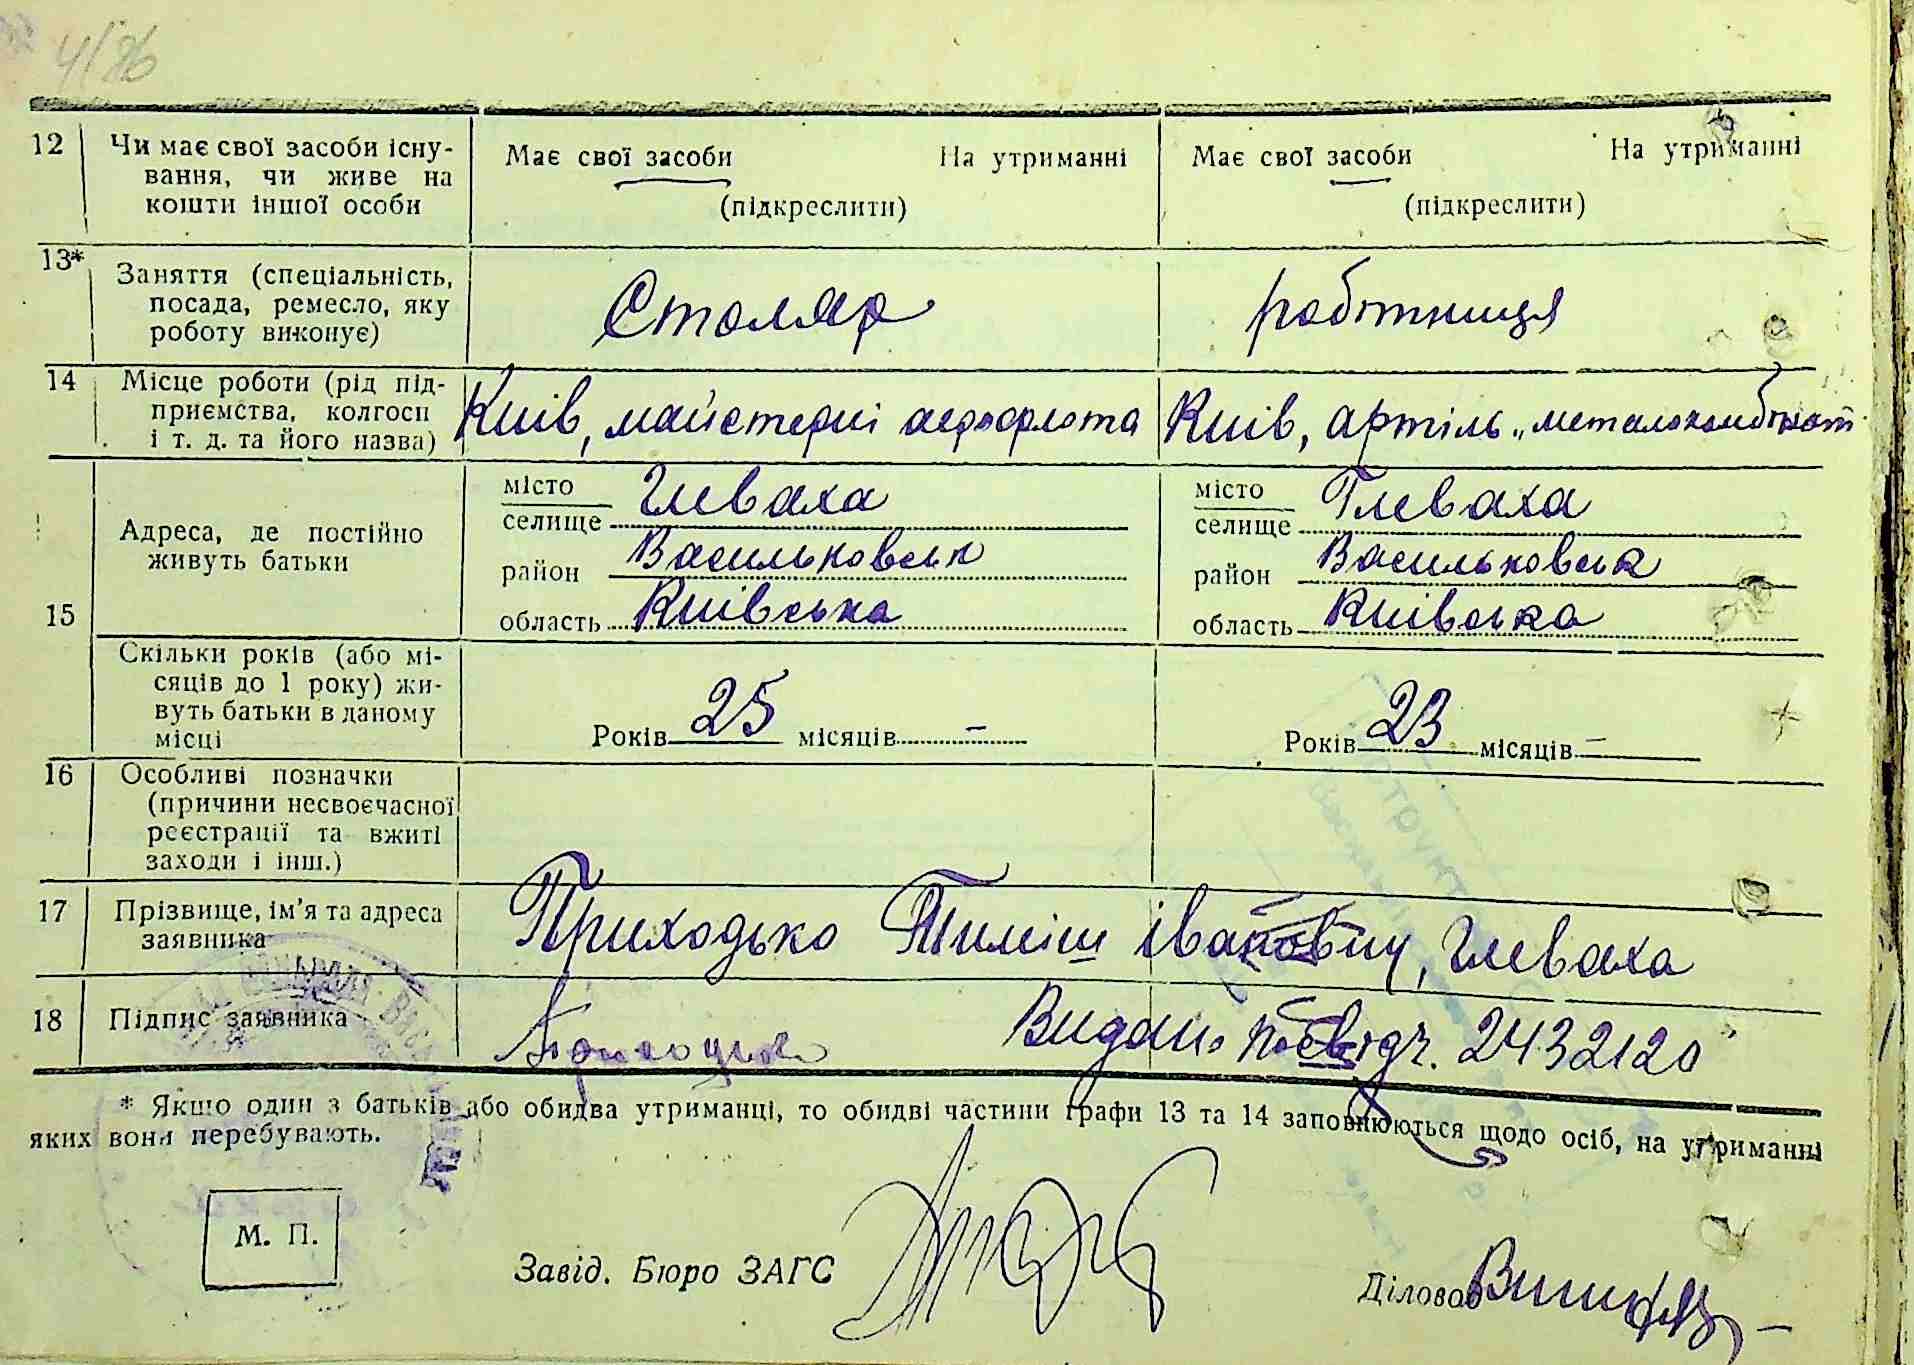 4/86
12 Чи має свої засоби існу- Має свої засоби На утриманні Має свої засоби На утриманні
вання, чи живе на
кошти іншої особи (підкреслити) (підкреслити)
13* Заняття (спеціальність, Столяр робітниця
посада, ремесло, яку
роботу виконує)
14 Місце роботи (рід під- Київ, майстерні аерофлота Київ, артіль „металокомбінат
приємства, колгосп
і т. д. та його назва)
15 Адреса, де постійно
живуть батьки
місто Глеваха місто Глеваха
селище селище
район Васильковськ район Васильковськ
область Київська область Київська
Скільки років (або мі-
сяців до 1 року) жи-
вуть батьки в даному
місці
Років 25 місяців - Років 23 місяців -
16 Особливі позначки
(причини несвоєчасної
реєстрації та вжиті
заходи і інш.)
17 Прізвище, ім'я та адреса Приходько Тиміш Іванович, Глеваха
заявника
18 Підпис заявника Приходько Видано посвідч. 2432120
* Якшо один з батьків або обидва утриманці, то обидві частини графи 13 та 14 заповнюються щодо осіб, на утриманні
яких вони перебувають.
М. П.
Завід. Бюро ЗАГС
Діловод